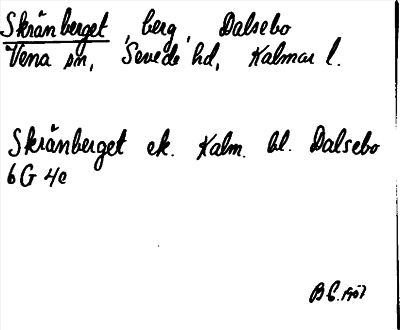 Skrånberget, berg, Dalsebo
Vena sn, Sevede hd, Kalmar l.
Skrånberget ek. Kalm. bl. Dalsebo
6G 4e